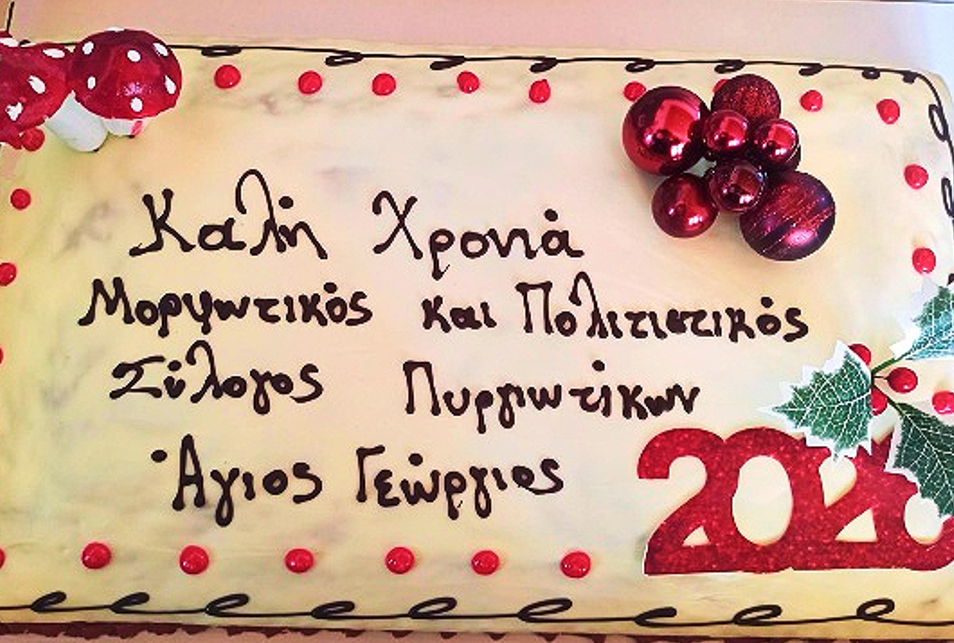 Καλή Χρονιά
Μορφωτικός και Πολιτιστικός
Σύλογος Πυργιωτίκων
Άγιος Γεώργιος
2020